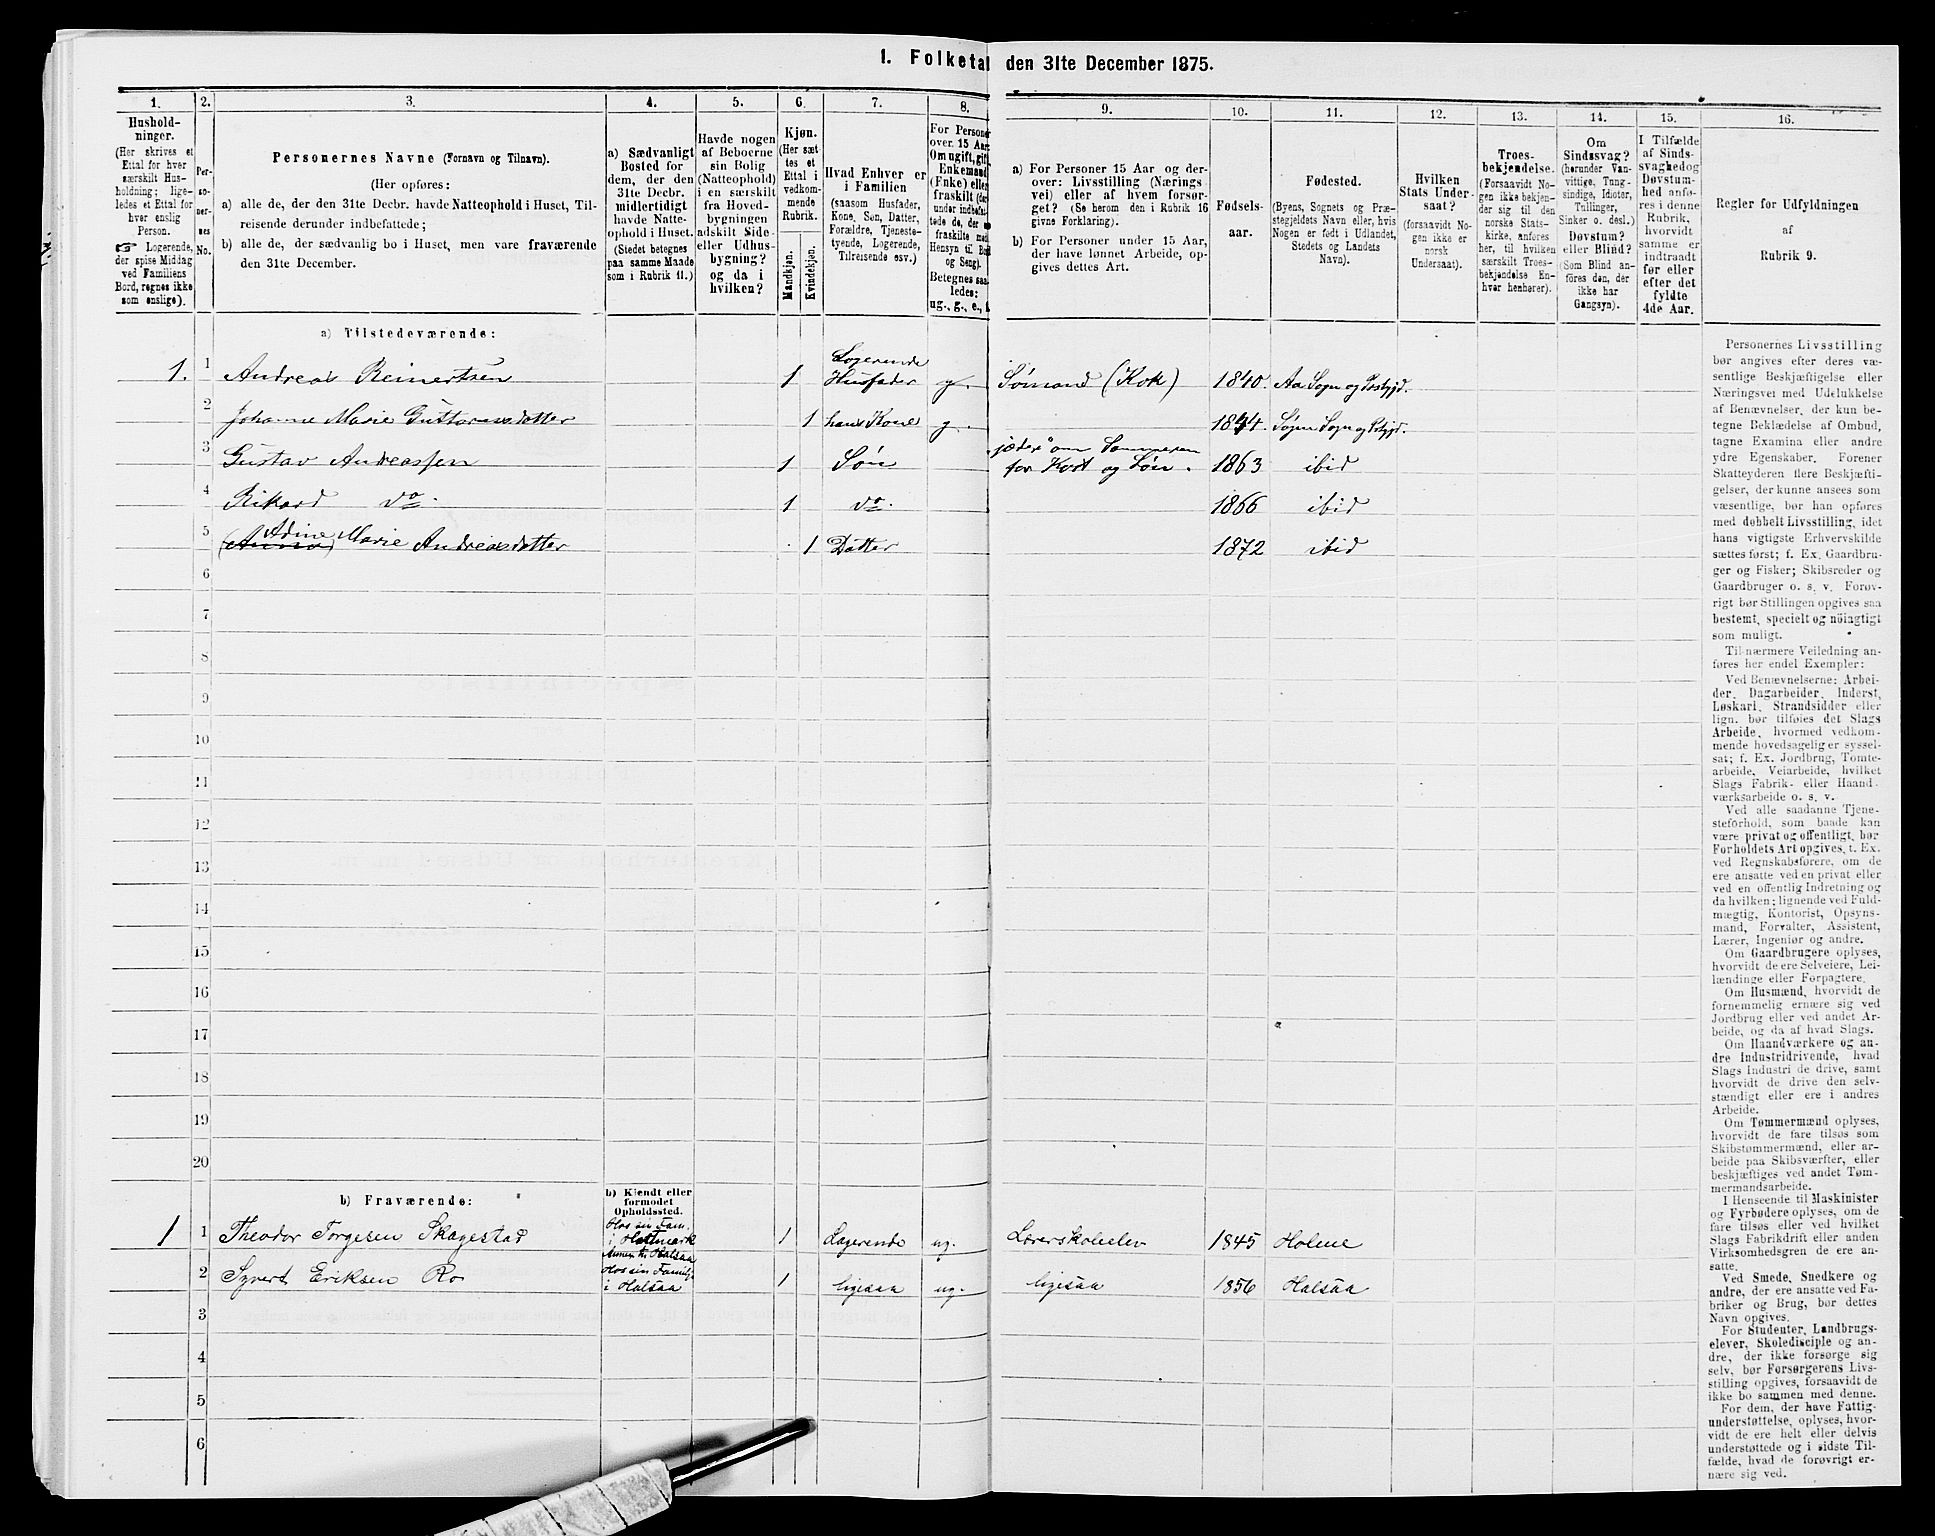 1. Folketal den 31te December 1875.
1. 2. 3. 4. 5. 6. 7. 8. 9. 10. 11. 12. 13. 14. 15. 16.
Hushold-
ninger.
(Her skrives et
Ettal for hver
særskilt Hus-
holdning; lige-
ledes et Ettal for
hver enslig
Person.
☞ Logerende,
der spise Middag
ved Familiens
Bord, regnes ikke
som enslige).
Per-
so-
ner-
nes
No.
Personernes Navne (Fornavn og Tilnavn).
(Her opføres:
a) alle de, der den 31te Decbr. havde Natteophold i Huset, Til-
reisende derunder indbefattede;
b) alle de, der sædvanlig bo i Huset, men vare fraværende
den 31te December.
a) Sædvanligt
Bosted for
dem, der den
31te Decbr.
midlertidigt
havde Natte-
ophold i Huset.
(Stedet betegnes
paa samme Maade
som i Rubrik 11.)
Havde nogen
af Beboerne
sin Bolig
(Natteophold)
i en særskilt
fra Hoved-
bygningen
adskilt Side-
eller Udhus-
bygning?
og da i
hvilken?
Kjøn.
(Her sæt-
tes et
Ettal i
vedkom-
mende
Rubrik.
Mandkjøn.
Kvindekjøn.
Hvad Enhver er
i Familien
(saasom Husfader,
Kone, Søn, Datter,
Forældre, Tjeneste-
tyende, Logerende,
Tilreisende osv.).
For Persone
over 15 Aar
Om ugift, gift,
Enkemand
(Enke) elle
fraskilt (der-
under indbefat-
tede de, der
fraskilte med
Hensyn til Bord
og Seng).
Betegnes saa-
ledes:
ug., g., e., f.
a) For Personer 15 Aar og der-
over: Livsstilling (Nærings-
vei) eller af hvem forsør-
get? (Se herom den i Rubrik 16
givne Forklaring).
b) For Personer under 15 Aar,
der have lønnet Arbeide, op-
gives dettes Art.
Fødsels-
aar.
Fødested.
(Byens, Sognets og Præ-
stegjeldets Navn eller, hvis
Nogen er født i Udlandet,
Stedets og Landets
Navn).
Hvilken
Stats Under-
saat?
(forsaavidt No-
gen ikke er
norsk
Undersaat).
Troes-
bekjendelse.
(Forsaavidt No-
gen ikke bekjen-
der sig til den
norske Stats-
kirke, anføres
her, til hvilken
særskilt Troes-
bekjendelse En-
hver henhører).
Om
Sindssvag?
(herunder Van-
vittige, Tung-
sindige, Idioter,
Tullinger,
Sinker o. desl.)
Døvstum?
eller Blind?
(Som Blind an-
føres den, der
ikke har
Gangsyn).
I Tilfælde
af Sinds-
svaghed og
Døvstum-
hed anfø-
res i denne
Rubrik,
hvorvidt
samme er
indtraadt
før eller
efter det
fyldte
4de Aar.
Regler for Udfyldningen
af
Rubrik 9.
a) Tilstedeværende:
Logerende
1. 1 Andreas Reinertsen 1 Husfader g. Sømand (Kok) 1840. Aa Sogn og Prstgjd.
2 Johanne Marie Guttormsdatter 1 hans Kone g. 1844. Søgne Sogn og Pstgjd.
jæder om Sommeren
3 Gustav Andreassen 1 Søn for Kost og Løn. 1863 ibid
4 Rikard do. 1 do. 1866 ibid
Adine
5 (Anna) Marie Andreasdatter 1 Datter 1872 ibid
6
7
8
9
10
11
12
13
14
15
16
17
18
19
20
b) Fraværende:
b) Kjendt eller
formodet
Opholdssted.
Hos sin Fam.
1 1 Theodor Torgesen Skagestad i Holtmark 1 Logerende ug. Lærerskoleelev 1845 Holme
Halsaa
Hos sin Familje
2 Syvert Eriksen Ro i Halsaa 1 ligesaa ug. ligesaa 1856 Halsaa
3
4
5
6
Personernes Livsstilling
bør angives efter deres væ-
sentlige Beskjæftigelse eller
Næringsvei med Udelukkelse
af Benævnelser, der kun be-
tegne Beklædelse af Ombud,
tagne Examina eller andre
ydre Egenskaber. Forener
Skatteyderen flere Beskjæfti-
gelser, der kunne ansees som
væsentlige, bør han opføres
med dobbelt Livsstilling, idet
hans vigtigste Erhvervskilde
sættes først; f. Ex. Gaardbru-
ger og Fisker; Skibsreder og
Gaardbruger o. s. v. Forøv-
rigt bør Stillingen opgives saa
bestemt, specielt og nöiagtigt
som muligt.
Til nærmere Veiledning an-
føres her endel Exempler:
Ved Benævnelserne: Arbei-
der, Dagarbeider, Inderst,
Løskarl, Strandsidder eller
lign. bør tilføies det Slags
Arbeide, hvormed vedkom-
mende hovedsagelig er syssel-
sat; f. Ex. Jordbrug, Tomte-
arbeide, Veiarbeide, hvilket
Slags Fabrik- eller Haand-
værksarbeide o. s. v.
Ved alle saadanne Tjene-
steforhold, som baade kan
være privat og offentligt, bør
Forholdets Art opgives, t. Ex.
ved Regnskabsførere, om de
ere ansatte ved en privat eller
ved en offentlig Indretning og
da hvilken; lignende ved Fuld-
mægtig, Kontorist, Opsyns-
mand, Forvalter, Assistent,
Lærer, Ingeniør og andre.
Om Gaardbrugere oplyses,
hvorvidt de ere Selveiere, Lei-
lændinge eller Forpagtere.
Om Husmænd, hvorvidt de
fornemmelig ernære sig ved
Jordbrug eller ved andet Ar-
beide, og da af hvad Slags.
Om Haandværkere og an-
dre Industridrivende, hvad
Slags Industri de drive, samt
hvorvidt de drive den selv-
stændigt eller ere i andres
Arbeide.
Om Tømmermænd oplyses,
hvorvidt de fare tilsøs som
Skibstømmermænd, eller ar-
beide paa Skibsværfter, eller
beskjæftiges ved andet Tøm-
mermandsarbeide.
I Henseende til Maskinister
og Fyrbødere oplyses, om de
fare tilsøs eller ved hvilket
Slags Fabrikdrift eller anden
Virksomhedsgren de ere an-
satte.
Ved Smede, Snedkere og
andre, der ere ansatte ved Fa-
briker og Brug, bør dettes
Navn opgives.
For Studenter, Landbrugs-
elever, Skoledisciple og an-
dre, der ikke forsørge sig
selv, bør Forsørgerens Livs-
stilling opgives, forsaavidt de
ikke bo sammen med denne.
For dem, der have Fattig-
understøttelse, oplyses, hvor-
vidt de ere helt eller delvis
understøttede og i sidste Til-
fælde, hvad de forøvrigt er-
nære sig ved.